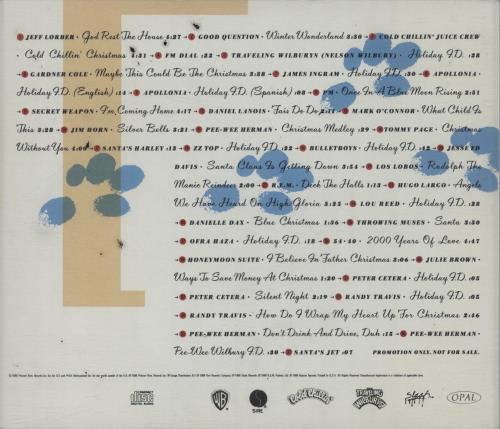 JEFF LORBER · God Rest The House 4:27 → GOOD QUESTION · Winter Wonderland 2:50 → COLD CHILLIN' JUICE CREW
· Cold Chillin' Christmas 4:31 → FM DIAL :22 → TRAVELING WILBURYS (NELSON WILBURY) · Holiday I.D. :28
→ GARDNER COLE · Maybe This Could Be The Christmas 3:58 → JAMES INGRAM · Holiday I.D. :30 → APOLLONIA ·
Holiday I.D. (English) :14 → APOLLONIA · Holiday I.D. (Spanish) :08 → PM · Once In A Blue Moon Rising 2:51
→ SECRET WEAPON · I'm Coming Home 4:17 → DANIEL LANOIS · 'Fais Do Do 2:11 → MARK O'CONNOR · What Child Is
This 3:28 → JIM HORN · Silver Bells 3:21 → PEE-WEE HERMAN · Christmas Medley :29 → TOMMY PAGE · Christmas
Without You 4:00 → SANTA'S HARLEY :13 → ZZ TOP · Holiday I.D. :22 → BULLETBOYS · Holiday I.D. :42 → JESSE ED
DAVIS · Santa Claus Is Getting Down 3:54 → LOS LOBOS · Rudolph The
Manic Reindeer 2:00 → R.E.M. · Deck The Halls 1:13 → HUGO LARGO · Angels
We Have Heard On High/Gloria 3:23 → LOU REED · Holiday I.D. :22
→ DANIELLE DAX · Blue Christmas 1:36 → THROWING MUSES · Santa 3:30
→ OFRA HAZA · Holiday I.D. :18 → 54·40 · 2000 Years Of Love 4:47
→ HONEYMOON SUITE · I Believe In Father Christmas 3:06 → JULIE BROWN ·
Ways To Save Money At Christmas 1:20 → PETER CETERA · Holiday I.D. :05
→ PETER CETERA · Silent Night 2:19 → RANDY TRAVIS · Holiday I.D. :05
→ RANDY TRAVIS · How Do I Wrap My Heart Up For Christmas 2:46
→ PEE-WEE HERMAN · Don't Drink And Drive, Duh :15 → PEE-WEE HERMAN ·
Pee-Wee Wilbury I.D. :30 → SANTA'S JET :07 PROMOTION ONLY. NOT FOR SALE.
COMPACT disc DIGITAL AUDIO WB SIRE Cold Chillin' TRAVELING WILBURYS OPAL